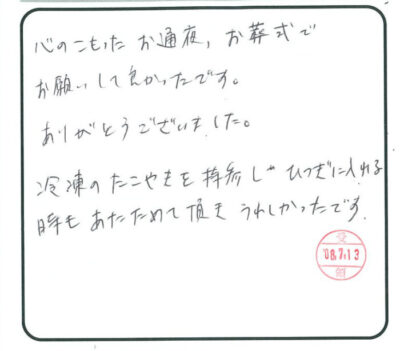 心のこもった お通夜, お葬式で
お願いして良かったです。
ありがとうございました。
冷凍のたこやきを 持参し ひつぎに入れる
時も あたためて頂き うれしかったです.
受
'08.7.13
領